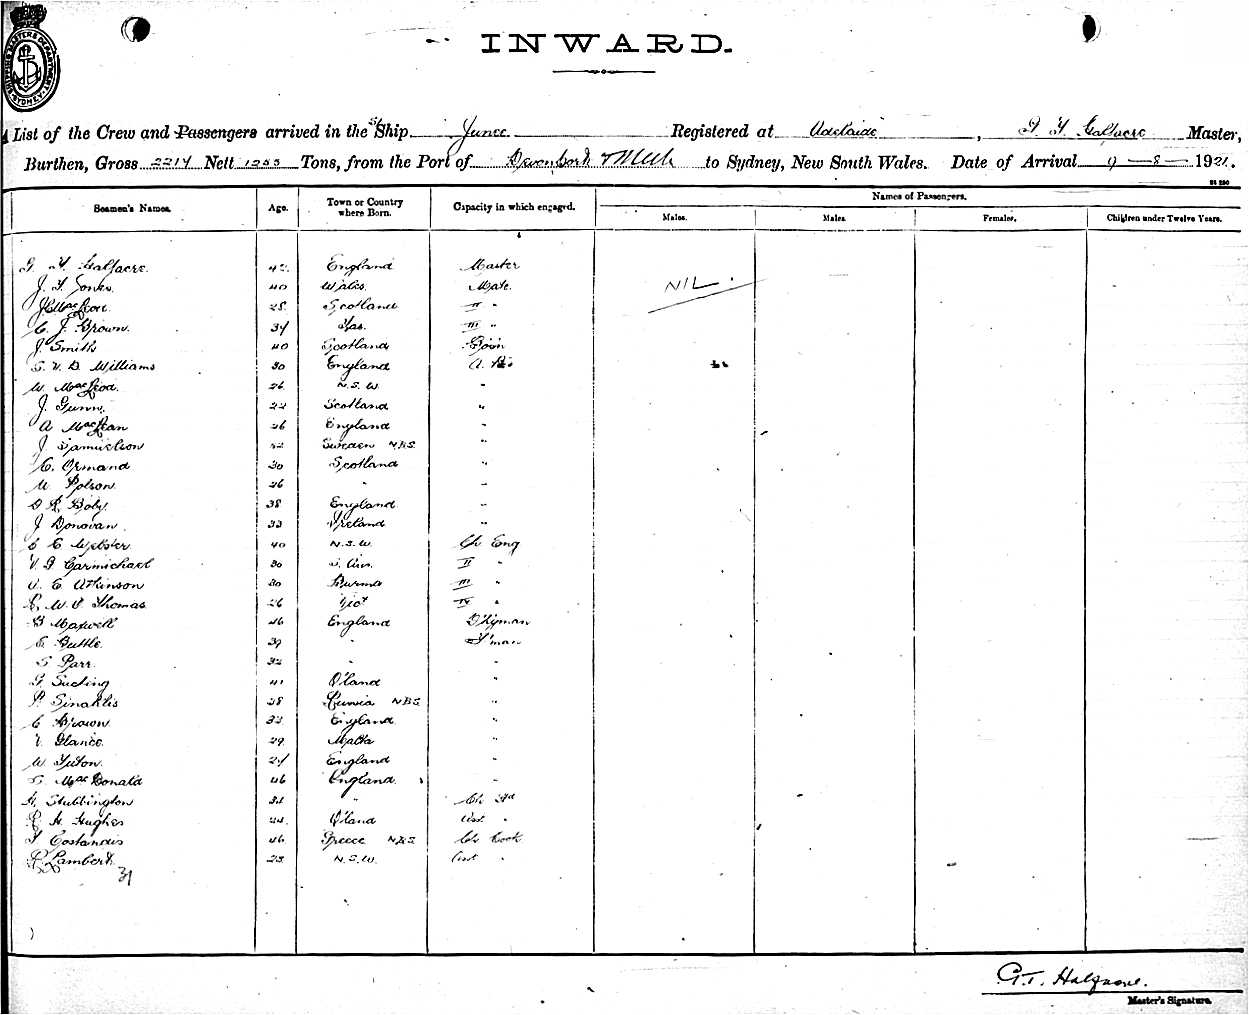 SHIPPING MASTERS DEPARTMENT SYDNEY
INWARD.
List of the Crew and Passengers arrived in the S/Ship Junee Registered at Adelaide, G. T. Halfacre Master,
Burthen, Gross 2214 Nett 1253 Tons, from the Port of Devonport & Melb to Sydney, New South Wales. Date of Arrival 9 – 8 – 1921.
Seamen's Names. Age. Town or Country where Born. Capacity in which engaged. Names of Passengers.
Males. Males. Females. Children under Twelve Years.
G. T. Halfacre. 42. England Master
J. T. Jones 40 Wales. Mate. NIL
MacLeod 28 Scotland II "
C. J. Brown. 34 Tas. III "
J. Smith 40 Scotland Bosn
S. V. D. Williams 30 England A. B.
W MacLeod. 26 N.S.W "
J. Gunn. 22 Scotland "
A MacLean 26 England "
J Samuelson 52 Sweden NBS "
C. Ormand 30 Scotland "
W Polson 26 " "
D R Boby. 38 England "
J Donovan 33 Ireland "
C Webster 40 N.S.W. Ch Eng
V. G Carmichael 30 S. Aus. II "
E Atkinson 30 Burma III "
W. Thomas 26 Vict IV "
B Maxwell 46 England D'kyman
E Buttle. 39 " F'man
S Parr. 32 " "
G Suding 41 Q'land "
P. Sinaklis 28 Russia NBS "
C Brown 32 England "
Glance 29 Malta "
W Tuton 24 England "
MacDonald 46 England. "
H. Stubbington 31 " Ch Std
R H. Hughes 24. Q'land Asst "
T Costandis 46 Greece NBS Ch Cook
R. Lambert 23 N.S.W. Asst "
31
G.T. Halfacre.
Master's Signature.